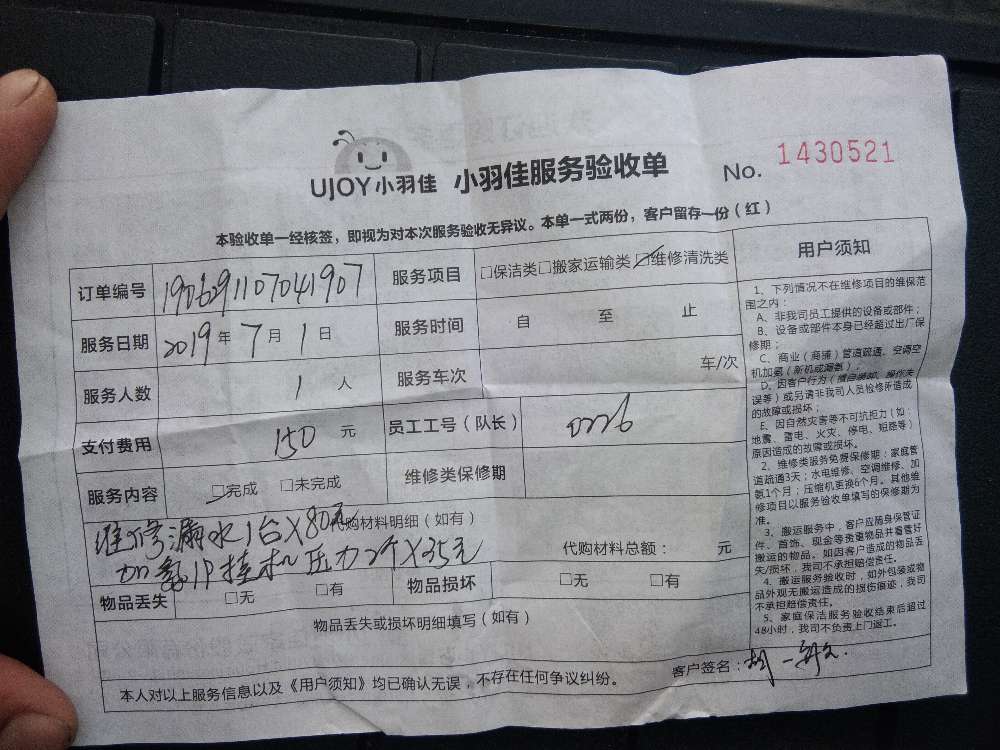 UJOY小羽佳 小羽佳服务验收单 No. 1430521
本验收单一经核签，即视为对本次服务验收无异议。本单一式两份，客户留存一份（红）
订单编号 1906291107041907 服务项目 □保洁类□搬家运输类☑维修清洗类
服务日期 2019年7月1日 服务时间 自 至 止
服务人数 1人 服务车次 车/次
支付费用 150元 员工工号（队长） 0226
服务内容 ☑完成 □未完成 维修类保修期
代购材料明细（如有）
维修漏水1台X80元
加氨1P挂机压力2个X35元
代购材料总额： 元
物品丢失 □无 □有 物品损坏 □无 □有
物品丢失或损坏明细填写（如有）
本人对以上服务信息以及《用户须知》均已确认无误，不存在任何争议纠纷。
客户签名：胡一
用户须知
1、下列情况不在维修项目的维保范
围之内：
A、非我司员工提供的设备或部件；
B、设备或部件本身已经超过出厂保
修期；
C、商业（商铺）管道疏通、空调空
机加氨（新机或漏氨）；
D、因客户行为（擅自装卸、操作失
误等）或另请非我司人员检修所造成
的故障或损坏；
E、因自然灾害等不可抗拒力（如：
地震、雷电、火灾、停电、短路等）
原因造成的故障或损坏。
2、维修类服务免费保修期：家庭管
道疏通3天；水电维修、空调维修、加
氨1个月；压缩机更换6个月。其他维
修项目以服务验收单填写的保修期为
准。
3、搬运服务中，客户应随身保管证
件、首饰、现金等贵重物品并看管好
搬运的物品。如因客户造成的物品丢
失/损坏，我司不承担赔偿责任。
4、搬运服务验收时，如外包装或物
品外观无搬运造成的损伤痕迹，我司
不承担赔偿责任。
5、家庭保洁服务验收结束后超过
48小时，我司不负责上门返工。